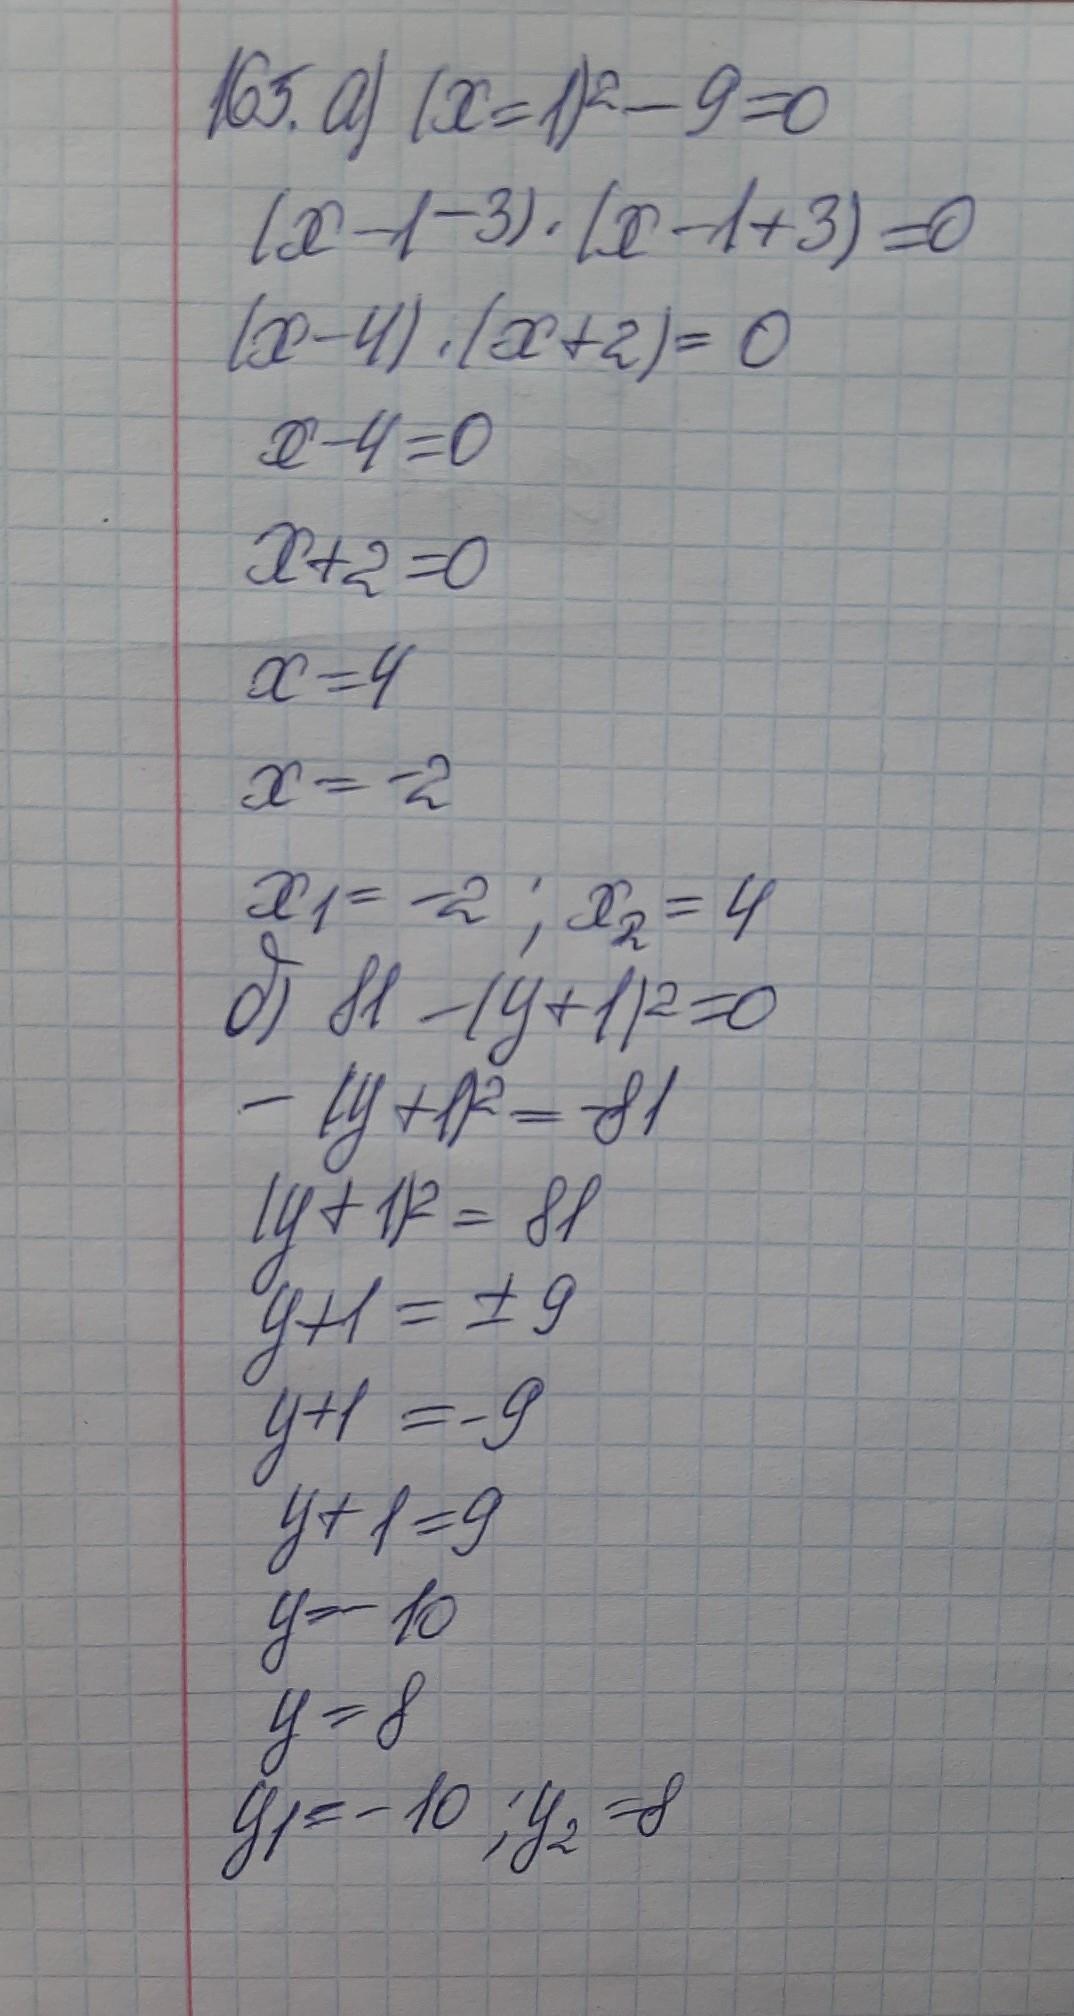 165. а) (x=1)²-9=0
(x-1-3)·(x-1+3)=0
(x-4)·(x+2)=0
x-4=0
x+2=0
x=4
x=-2
x₁=-2; x₂=4
б) 81-(y+1)²=0
-(y+1)²=-81
(y+1)²=81
y+1=±9
y+1=-9
y+1=9
y=-10
y=8
y₁=-10; y₂=8